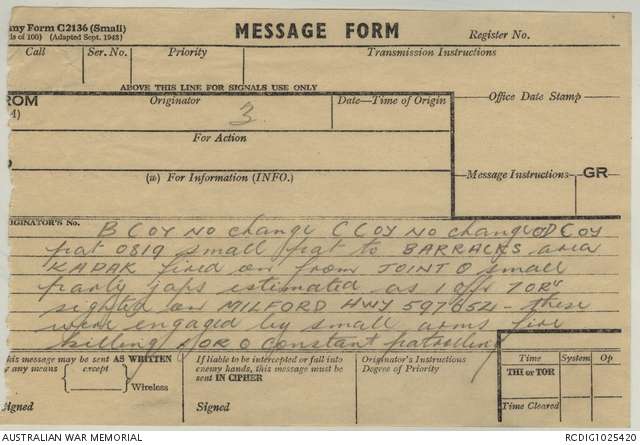 my Form C2136 (Small)
ds of 100) (Adapted Sept. 1943)
MESSAGE FORM
Register No.
Call Ser. No. Priority Transmission Instructions
ABOVE THIS LINE FOR SIGNALS USE ONLY
ROM
Originator
3
Date—Time of Origin
Office Date Stamp
For Action
(w) For Information (INFO.)
Message Instructions GR
RIGINATOR'S No.
B COY NO change C COY NO change D COY
pat 0819 small pat to BARRACKS area
KADAK fired on from JOINT O small
party japs estimated as 1 offr 7 OR's
sighted on MILFORD HWY 597652 - these
were engaged by small arms fire
killing OR O Constant patrolling
his message may be sent AS WRITTEN
y any means except
Wireless
Signed
If liable to be intercepted or fall into
enemy hands, this message must be
sent IN CIPHER
Signed
Originator's Instructions
Degree of Priority
Time System Op
THI or TOR
Time Cleared
AUSTRALIAN WAR MEMORIAL RCDIG1025420